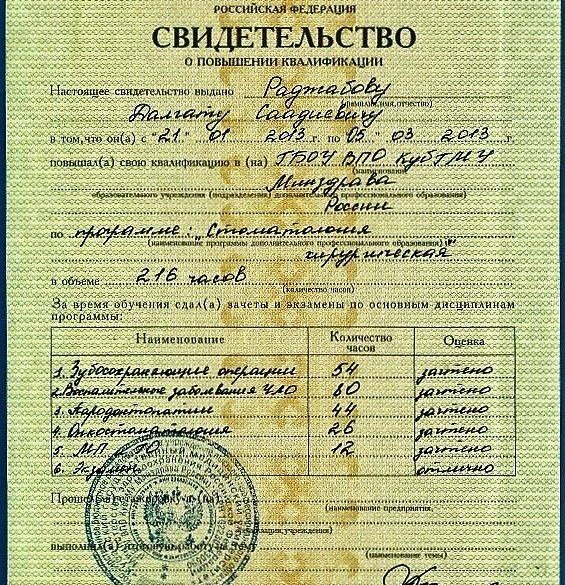 РОССИЙСКАЯ ФЕДЕРАЦИЯ
СВИДЕТЕЛЬСТВО
О ПОВЫШЕНИИ КВАЛИФИКАЦИИ
Настоящее свидетельство выдано Раджабову
(фамилия,имя,отчество)
Далгату Саадиевичу
в том,что он(а) с "21" 01 2013 г. по "05" 03 2013 г.
повышал(а) свою квалификацию в (на) ГБОУ ВПО КубГМУ
(наименование
Минздрава
образовательного учреждения (подразделения) дополнительного профессионального образования)
России
по программе: „Стоматология
(наименование программы дополнительного профессионального образования)
хирургическая"
в объеме 216 часов
(количество часов)
За время обучения сдал(а) зачеты и экзамены по основным дисциплинам
программы:
Наименование Количество часов Оценка
1. Зубосохраняющие операции 54 зачтено
2. Воспалительные заболевания ЧЛО 80 зачтено
3. Пародонтопатии 44 зачтено
4. Онкостоматология 26 зачтено
5. МП 12 зачтено
6. Экзамен отлично
Прошел(а) стажировку в (на)
(наименование предприятия,
организации,учреждения)
выполнил(а) итоговую работу на тему
(наименование темы)